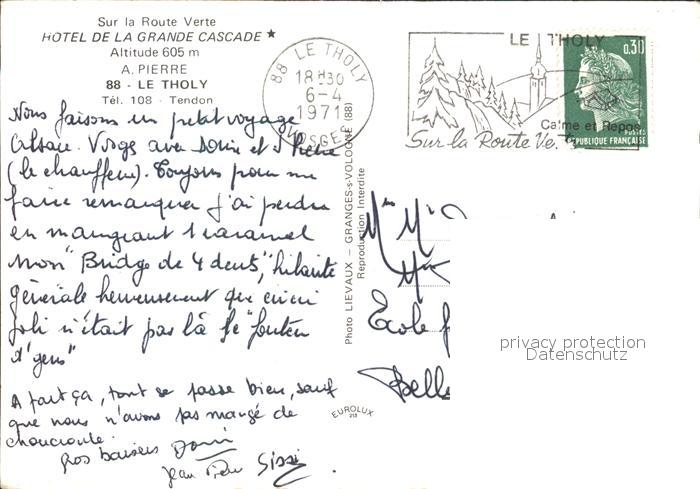 Sur la Route Verte
HOTEL DE LA GRANDE CASCADE ★
Altitude 605 m
A. PIERRE
88 - LE THOLY
Tél. 108 - Tendon
88 LE THOLY
18H30
6-4
1971
VOSGES
LE THOLY
0,30
Calme et Repos
Sur la Route Ve
REPUBLIQUE FRANÇAISE
Nous faisons un petit voyage
Alsace. Vosges avec Denise et J Pierre
(le chauffeur). Toujours pour me
faire remarquer j'ai perdu
en mangeant 1 caramel
mon "Bridge de 4 dents", hilarité
générale heureusement que
joli n'était pas là le "fouteu
d'gens"
A part ça, tout se passe bien, sauf
que nous n'avons pas mangé de
choucroute.
Gros baisers
Jean Pierre Sissi
Photo LIEVAUX — GRANGES-s-VOLOGNE (88)
Reproduction Interdite
EUROLUX
Mme
Ecole
Belle
privacy protection
Datenschutz